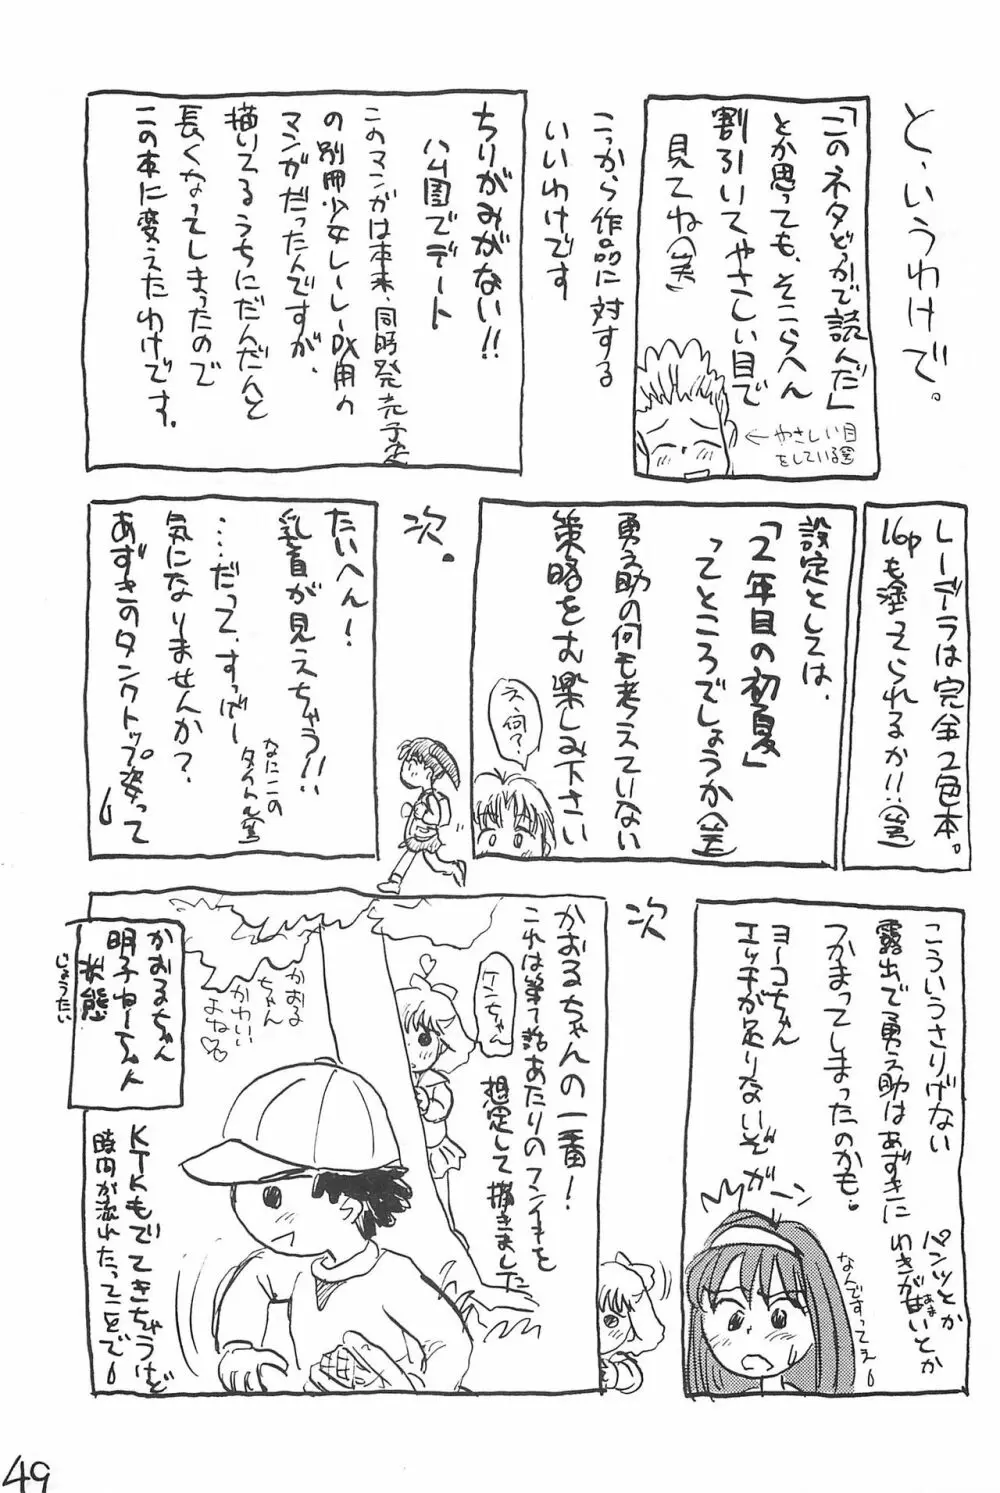 と、いうわけで。
「このネタどっかで読んだ」
とか思っても、そこらへん
割引いてやさしい目で
見てね(笑)
←やさしい目
をしている(笑)
こっから作品に対する
いいわけです
ちりがみがない!!
ハム園でデート
このマンガは本来、同時発売予定
の別冊少女レーレーDX用の
マンガだったんですが、
描いてるうちにだんだんと
長くなってしまったので
この本に変えたわけです。
レーデラは完全2色本。
16pも塗ってられるか!!(笑)
設定としては、
「2年目の初夏」
ってところでしょうか(笑)
勇之助の何も考えていない
策略をお楽しみ下さい
え、何?
次。
たいへん!
乳首が見えちゃう!!
なにこの
タイトル(笑)
……だって、すっげー
気になりませんか?
あずきのタンクトップ姿って
こういうさりげない
露出で勇之助はあずきに
つかまってしまったのかも。
パンツとか
わきが甘いとか
ヨーコちゃん
エッチが足りないぞ
ガーン
なんですってえ
次
かおるちゃんの一番!
これは第1話あたりのフンイキを
想定して描きました
ケンちゃん
かおる
ちゃん
かわいい
よね♡♡
かおるちゃん
明子ねーちゃん
状態
じょうたい
KTKもでてきちゃうけど
時間が流れたってことで
49